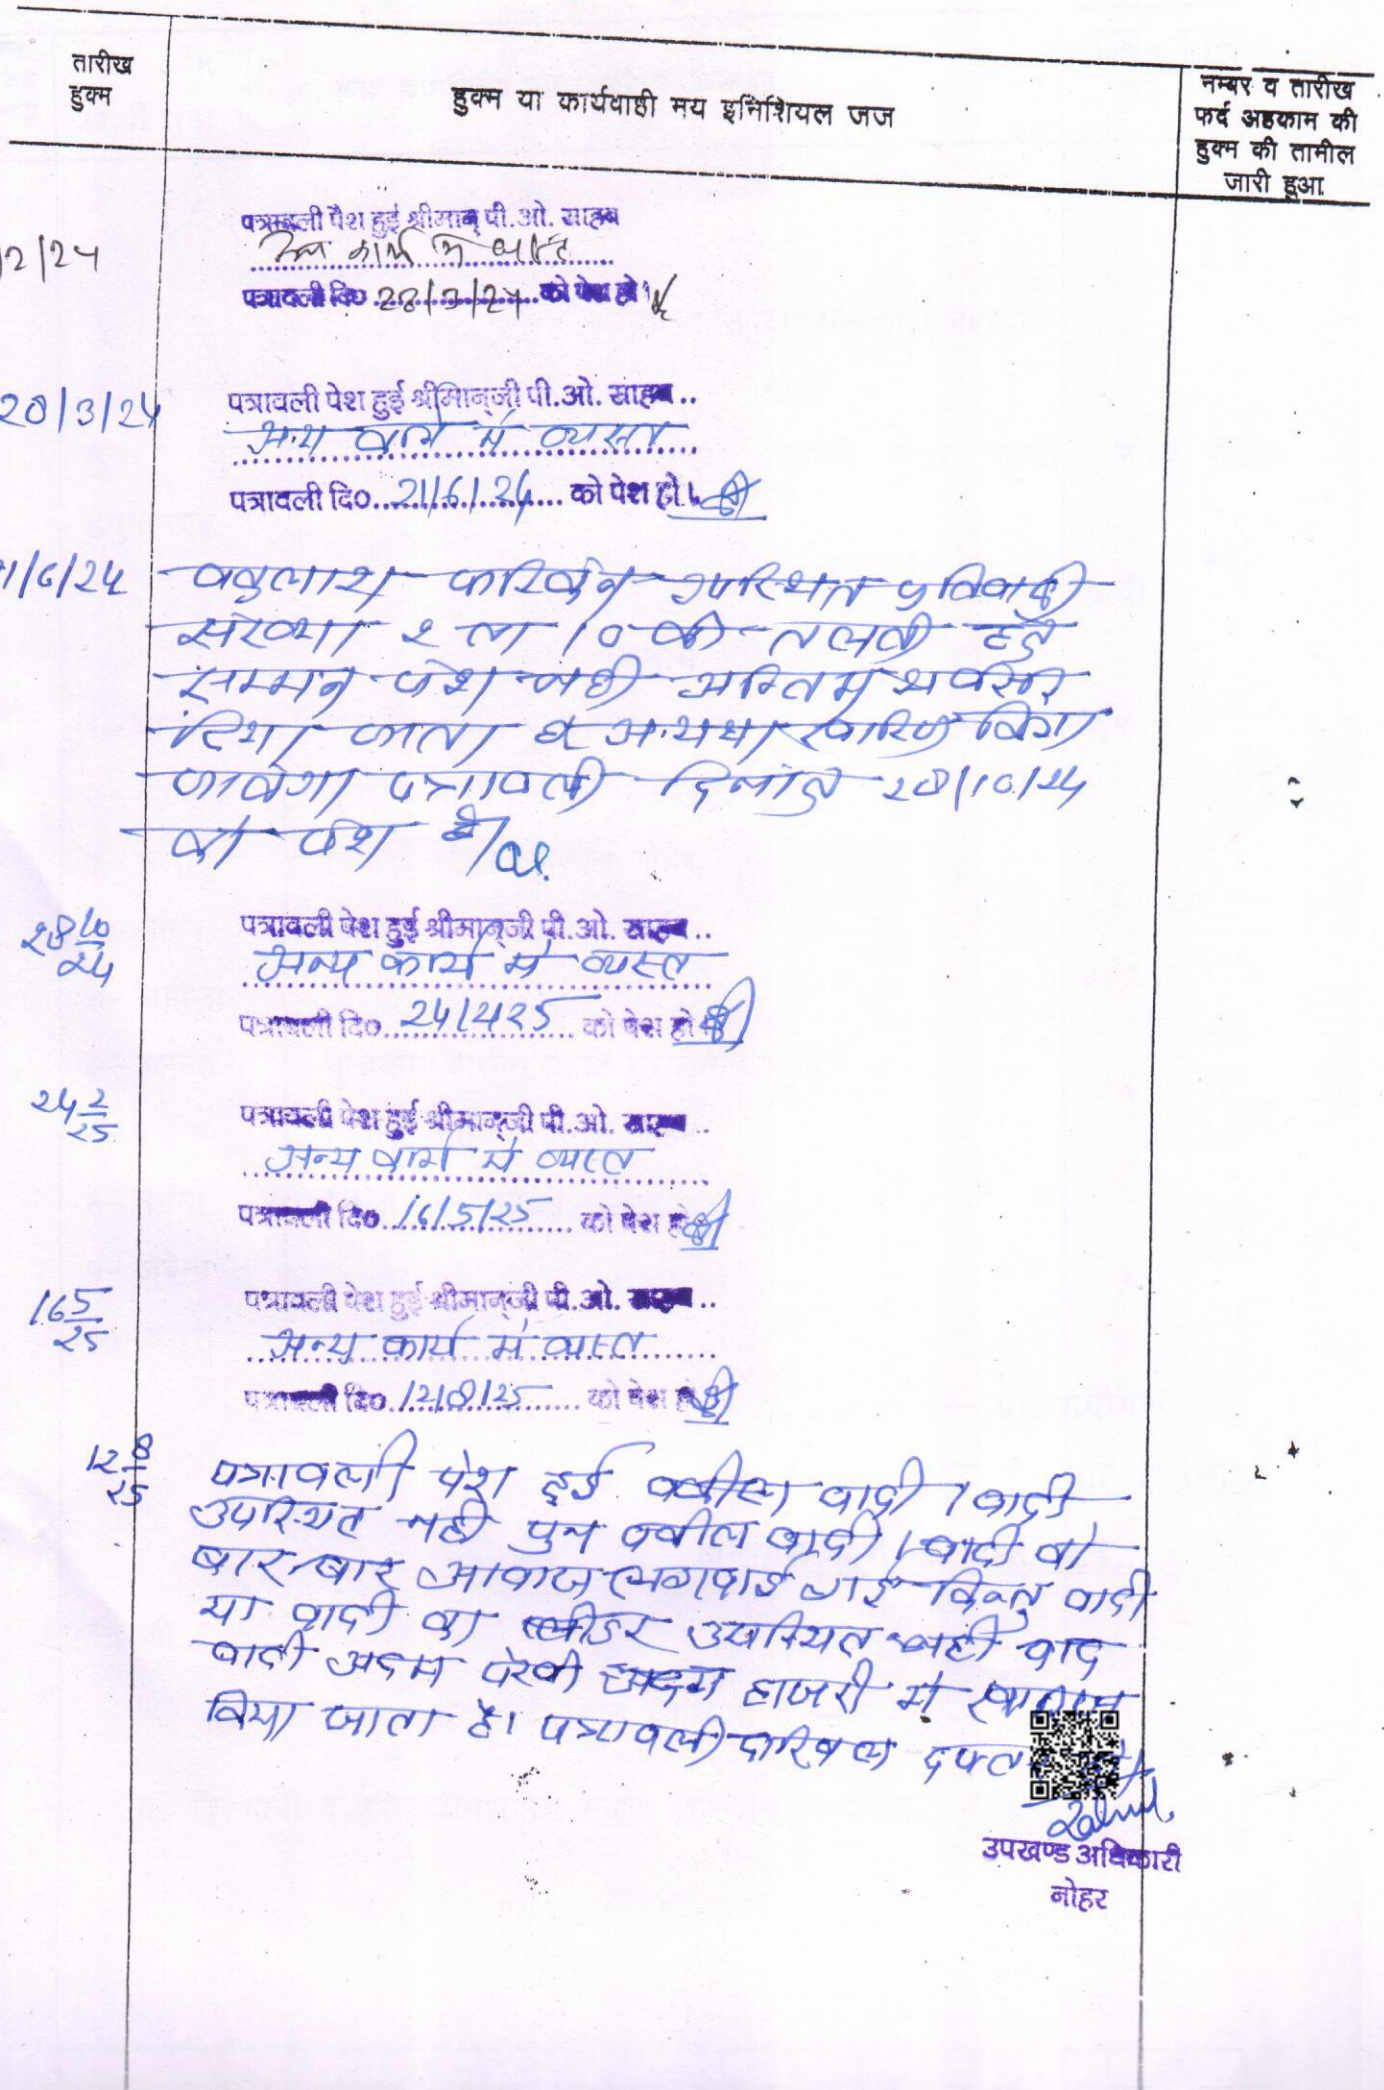 तारीख
हुक्म
हुक्म या कार्यवाही मय इनिशियल जज
नम्बर व तारीख
फर्द अहकाम की
हुक्म की तामील
जारी हुआ
2/24
पत्रावली पेश हुई श्रीमान् पी.ओ. साहब
कार्य में व्यस्त
पत्रावली दि० 28/3/24 को पेश हो।
28/3/24
पत्रावली पेश हुई श्रीमान्जी पी.ओ. साहब..
अन्य कार्य में व्यस्त
पत्रावली दि० 21/6/24 को पेश हो।
1/6/24
वकुलाय फरिकेन उपस्थित प्रतिवादी
संख्या 2 ता 10 की तलबी हेतु
सम्मन पेश नही अन्तिम अवसर
दिया जाता है अन्यथा खारिज किया
जावेगा पत्रावली दिनांक 28/10/24
को पेश हो।
28 10/24
पत्रावली पेश हुई श्रीमान्जी पी.ओ. साहब..
अन्य कार्य में व्यस्त
पत्रावली दि० 24/2/25 को पेश हो
24 2/25
पत्रावली पेश हुई श्रीमान्जी पी.ओ. साहब..
अन्य कार्य में व्यस्त
पत्रावली दि० 16/5/25 को पेश हो
16 5/25
पत्रावली पेश हुई श्रीमान्जी पी.ओ. साहब..
अन्य कार्य में व्यस्त
पत्रावली दि० 12/8/25 को पेश हो
12 8/25
पत्रावली पेश हुई वकील वादी / वादी
उपस्थित नही पुन वकील वादी / वादी को
बार-बार आवाज लगवाई गई किन्तु वादी
या वादी का प्लीडर उपस्थित नही वाद
वादी अदम पैरवी अदम हाजरी में खारिज
किया जाता है। पत्रावली दाखिल दफ्तर
उपखण्ड अधिकारी
नोहर